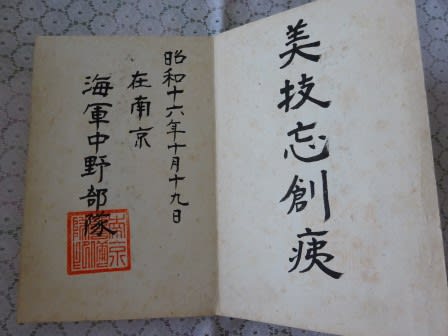 美技忘創痍
昭和十六年十月十九日
在南京
海軍中野部隊